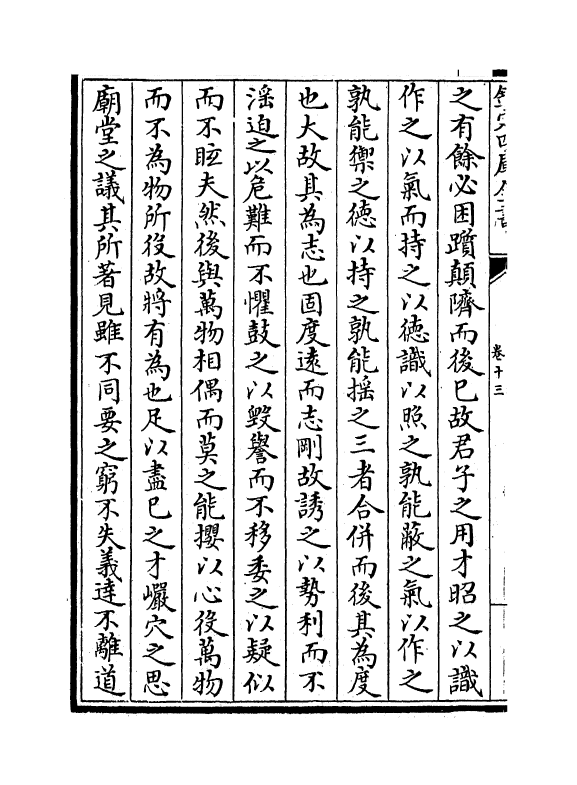 欽定四庫全書
卷十三
之有餘必困躓顛隮而後已故君子之用才昭之以識
作之以氣而持之以徳識以照之孰能蔽之氣以作之
孰能禦之徳以持之孰能揺之三者合併而後其為度
也大故其為志也固度逺而志剛故誘之以勢利而不
滛迫之以危難而不懼鼓之以毀譽而不移委之以疑似
而不眩夫然後與萬物相偶而莫之能攖以心役萬物
而不為物所役故將有為也足以盡已之才巗穴之思
廟堂之議其所著見雖不同要之窮不失義達不離道